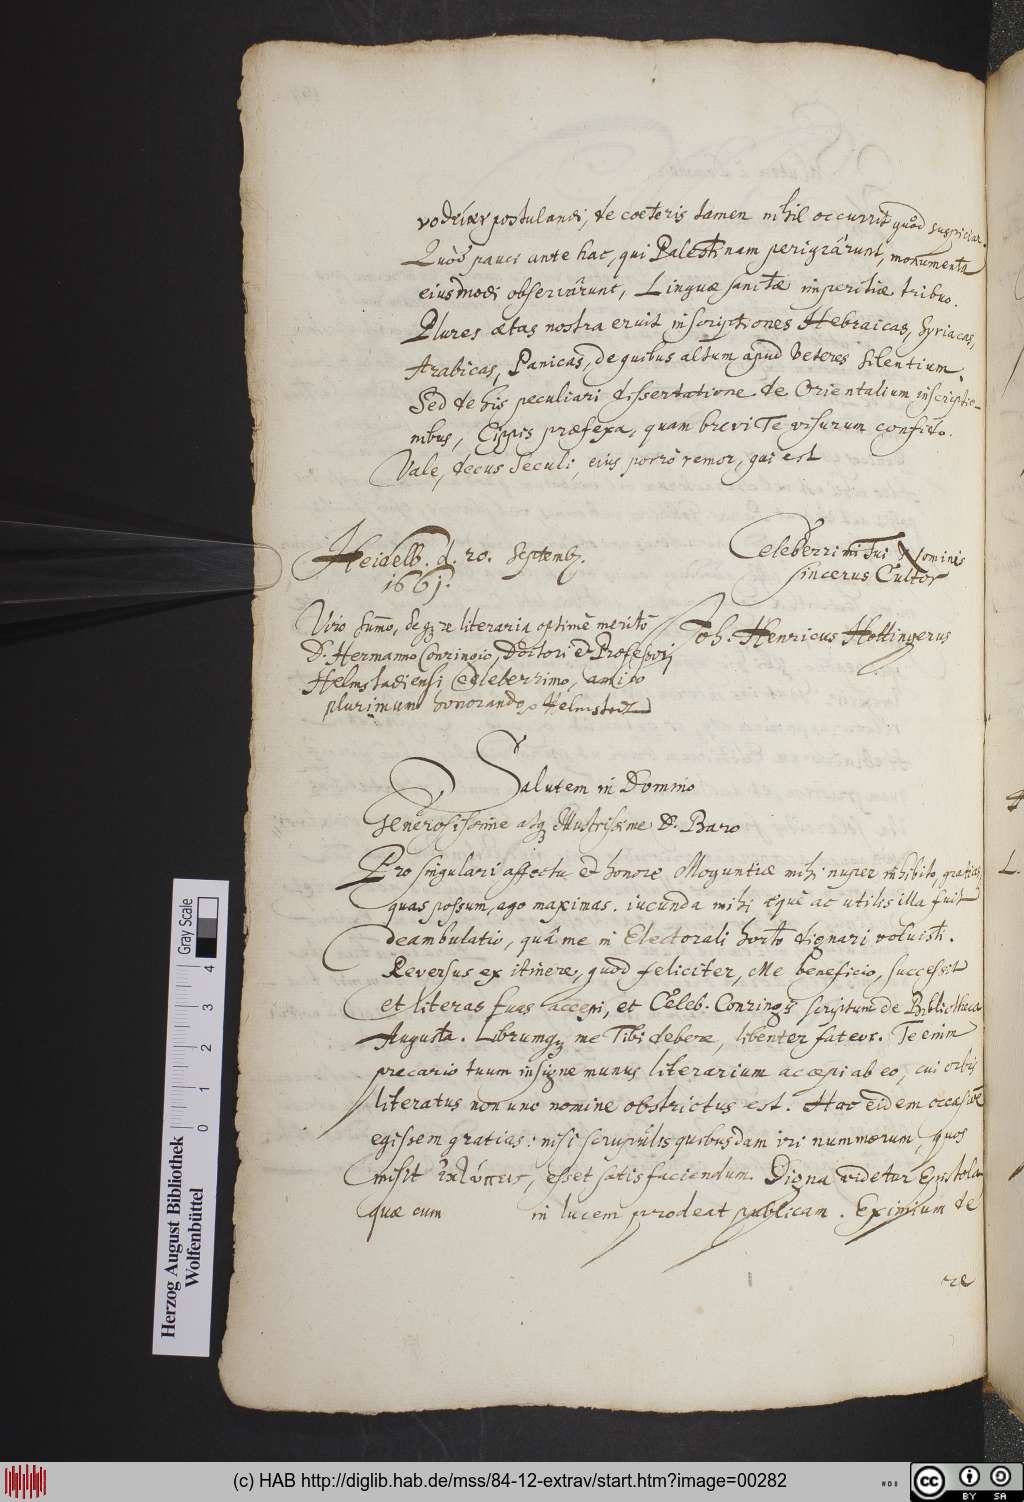 postulandi, de coeteris tamen nihil occurrit quod suspicier.
Quòd pauci ante hac, qui Palestinam perigrârunt, monumenta
eiusmodi observârunt, Linguæ sanctæ imperitiæ tribuo.
Plures ætas nostra eruit inscriptiones Hebraicas, Syriacas,
Arabicas, Punicas, de quibus altum apud Veteres silentium.
Sed de his peculiari dissertatione de Orientalium inscriptio-
nibus, Cippis præfexa, quam brevi Te visurum confido.
Vale, decus Seculi, eius porrò remor, qui est
Heidelb. d. 20. Septemb.
1661.
Celeberrimi Tui Nominis
sincerus Cultor
Joh. Henricus Hottingerus
Viro summo, deq; re literaria optimè meritô
D. Hermanno Conringio, Doctori et Professori
Helmstadiensi Celeberrimo, amico
plurimum honorando Helmstad
Salutem in Domino
Generosissime atq; Illustrissime D. Baro
Pro singulari affectu et honore Moguntiæ mihi nuper exhibito, gratias,
quas possum, ago maximas. iucunda mihi æquè ac utilis illa fuit
deambulatio, quâ me in Electorali horto dignari voluisti.
Reversus ex itinere, quod feliciter, Dei beneficio, successit
et literas tuas accepi, et Celeb. Conringij scriptum de Bibliotheca
Augusta. Librumq; me Tibi debere, libenter fateor. Te enim
precario tuum insigne munus literarium accepi ab eo, cui orbis
literatus non uno nomine obstrictus est. Hac eidem occasione
egissem gratias: nisi scrupulis quibusdam iri nummorum, quos
misit ἐκτύπεις, esset satisfaciendum. Digna videtur Epistola
quæ cum in lucem prodeat publicam. Eximium de
re
Herzog August Bibliothek
Wolfenbüttel
0 1 2 3 4
Gray Scale
(c) HAB http://diglib.hab.de/mss/84-12-extrav/start.htm?image=00282
cc BY SA